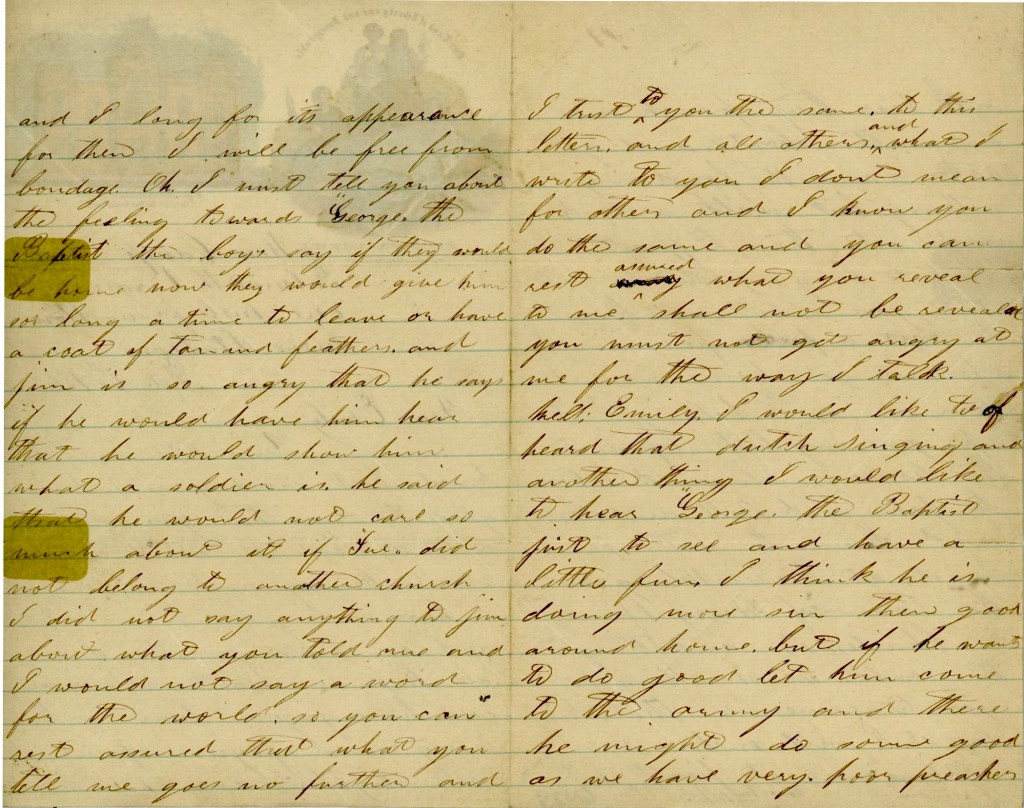 and I long for its appearance
for then I will be free from
bondage. Oh. I must tell you about
the feeling towards "George. the
Baptist the boys say if they would
be home now they would give him
so long a time to leave or have
a coat of tar and feathers. and
jim is so angry that he says
if he would have him hear
that he would show him
what a soldier is. he said
that he would not care so
much about it. if did
not belong to another church
I did not say anything to jim
about what you told me and
I would not say a word
for the world. so you can"
rest assured that what you
tell me goes no further and
I trust to you the same. to this
letter. and all others. and what I
write to you I dont mean
for others and I know you
do the same and you can
rest assured what you reveal
to me. shall not be reveald
you must not get angry at
me for the way I talk.
Well. Emily. I would like to of
heard that dutch singing and
another thing I would like
to hear "George. the Baptist
just to see and have a
little fun. I think he is
doing more sin then good
around home. but if he wants
to do good let him come
to the army and there
he might do some good
as we have very. poor preachers